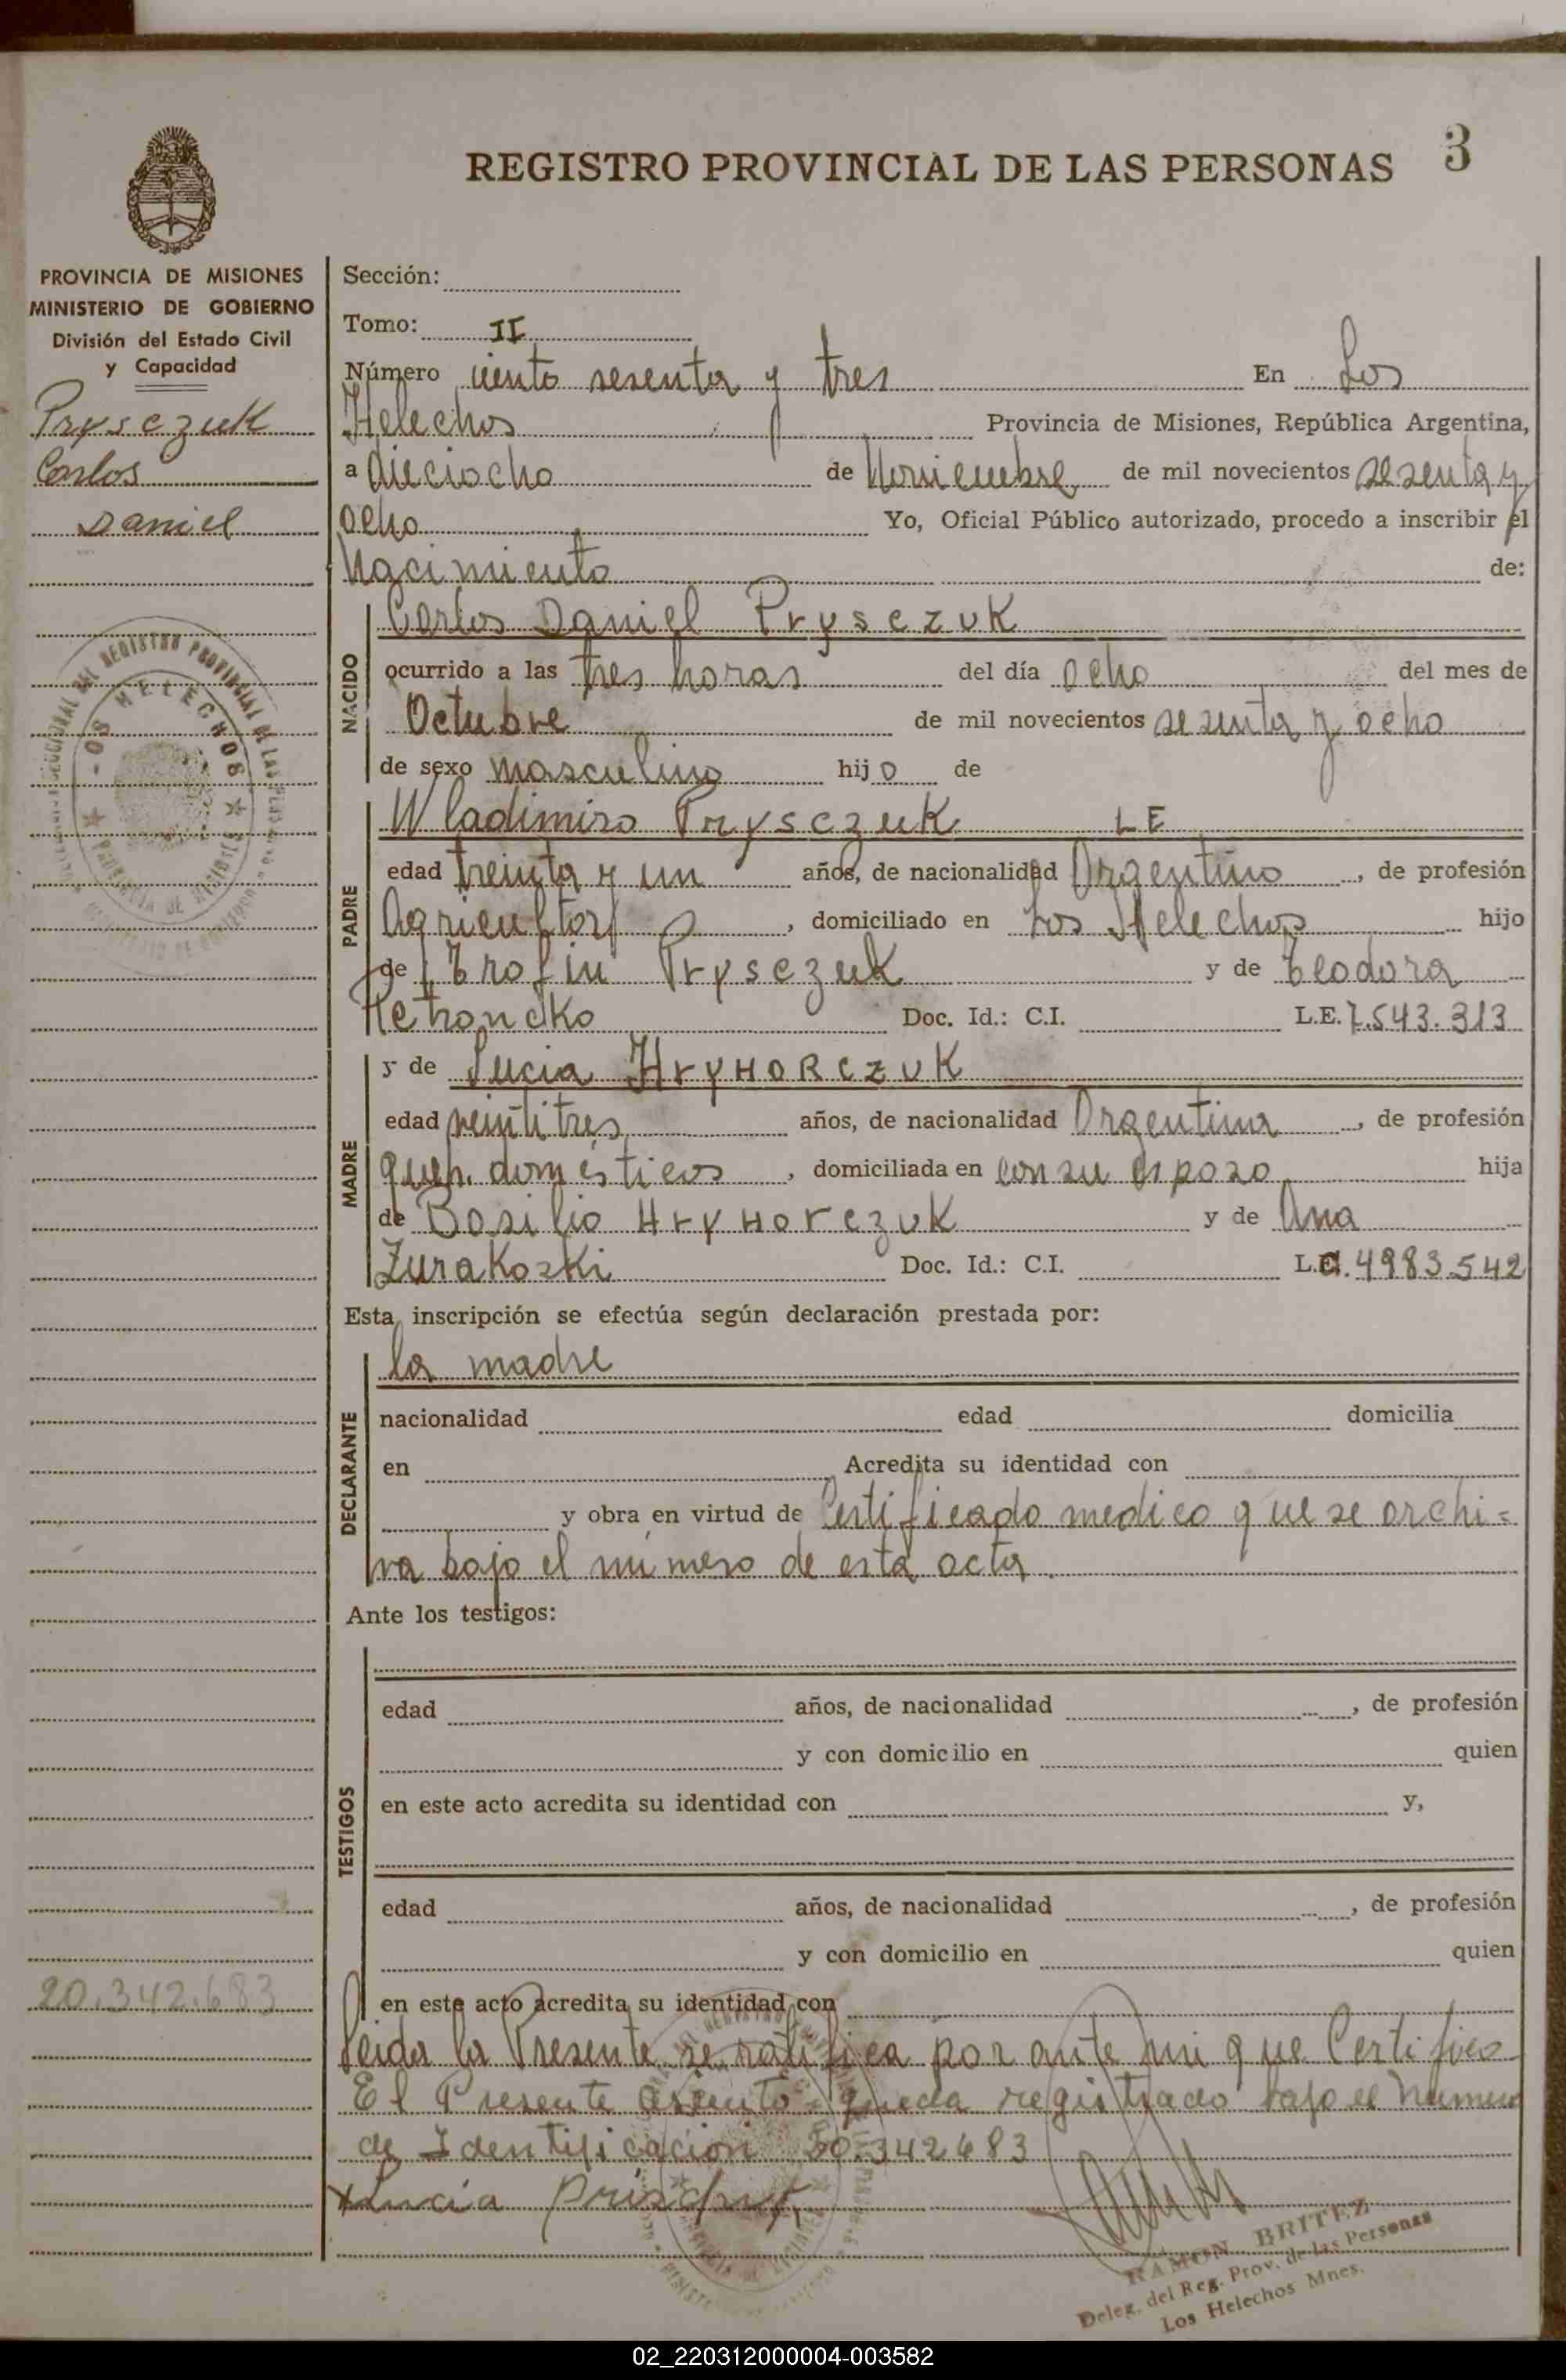 REGISTRO PROVINCIAL DE LAS PERSONAS 3
PROVINCIA DE MISIONES
MINISTERIO DE GOBIERNO
División del Estado Civil
y Capacidad
Prysczuk
Carlos
Daniel
20.342.683
Sección:
Tomo: II
Número ciento sesenta y tres En Los
Helechos Provincia de Misiones, República Argentina,
a dieciocho de Noviembre de mil novecientos sesenta y
ocho Yo, Oficial Público autorizado, procedo a inscribir el
Nacimiento de:
NACIDO
Carlos Daniel Prysczuk
ocurrido a las tres horas del día ocho del mes de
Octubre de mil novecientos sesenta y ocho
de sexo masculino hijo de
PADRE
Wladimiro Prysczuk LE
edad treinta y un años, de nacionalidad Argentino, de profesión
Agricultor, domiciliado en Los Helechos hijo
de Trofin Prysczuk y de Teodora
Doc. Id.: C.I. L.E. 7.543.313
MADRE
y de Lucia Hryhorczuk
edad veintitres años, de nacionalidad Argentina, de profesión
queh. domésticos, domiciliada en con su esposo hija
de Basilio Hryhorczuk y de Ana
Zurakoski Doc. Id.: C.I. L.C. 4983.542
Esta inscripción se efectúa según declaración prestada por:
DECLARANTE
la madre
nacionalidad edad domicilia
en Acredita su identidad con
y obra en virtud de Certificado medico que se archi=
va bajo el número de esta acta.
Ante los testigos:
TESTIGOS
edad años, de nacionalidad , de profesión
y con domicilio en quien
en este acto acredita su identidad con y,
edad años, de nacionalidad , de profesión
y con domicilio en quien
en este acto acredita su identidad con
Leida la Presente se ratifica por ante mi que Certifico
El Presente asiento queda registrado bajo el numero
de Identificacion 20.342683
x Lucia
RAMON BRITEZ
Deleg. del Reg. Prov. de las Personas
Los Helechos Mnes.
02_220312000004-003582